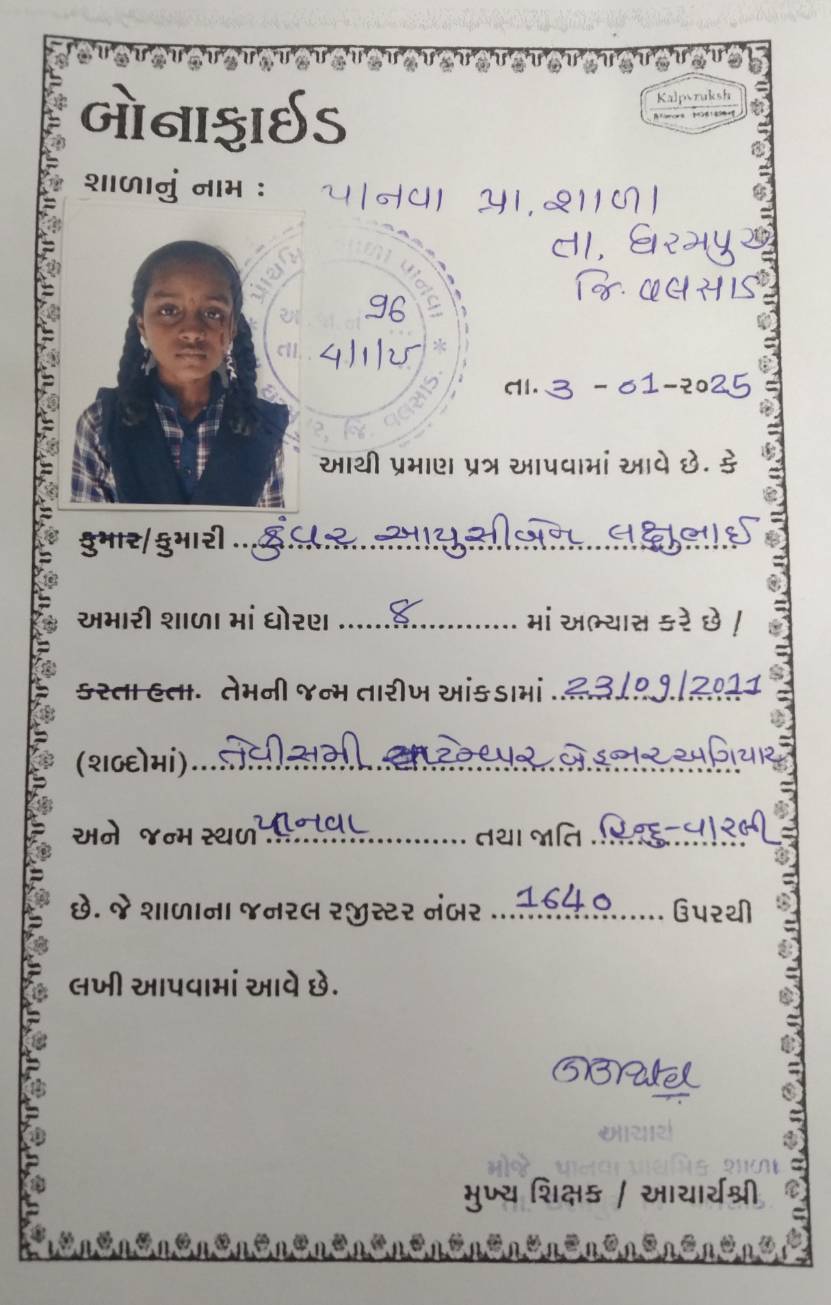 બોનાફાઈડ
Kalpvruksh
શાળાનું નામ : પાનવા પ્રા. શાળા
તા. ધરમપુર
જિ. વલસાડ
પ્રાથમિ શાળા પાનવા
96
તા. 4/1/25
જિ. વલસાડ.
તા. 3 - 01 - ૨૦25
આથી પ્રમાણ પત્ર આપવામાં આવે છે. કે
કુમાર/કુમારી .. કુંવર આયુસીબેન લક્ષુભાઈ
અમારી શાળા માં ધોરણ ..... 8 ..... માં અભ્યાસ કરે છે /
કરતા હતા. તેમની જન્મ તારીખ આંકડામાં .. 23/09/2011
(શબ્દોમાં) .. તેવીસમી સપ્ટેમ્બર બે હજાર અગિયાર
અને જન્મ સ્થળ પાનવા ..... તથા જાતિ .. હિન્દુ-વારલી
છે. જે શાળાના જનરલ રજીસ્ટર નંબર .. 1640 ..... ઉપરથી
લખી આપવામાં આવે છે.
Patel
આચાર્ય
મોજે પાનવા પ્રાથમિક શાળા
મુખ્ય શિક્ષક / આચાર્યશ્રી